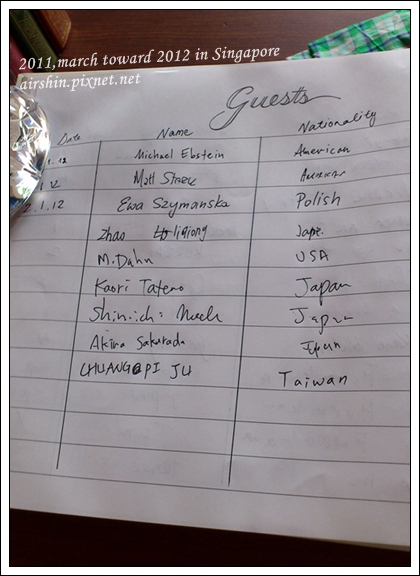 2011,march toward 2012 in Singapore
airshin.pixnet.net
Guests
Date Name Nationality
1.12 Michael Ebstein American
12 Matt
2.1.12 Ewa Szymanska Polish
Zhao liqiong
M. Dahn USA
Kaori Tateno Japan
Shinichi Japan
Akira Sakurada Japan
CHUANG PI JU Taiwan